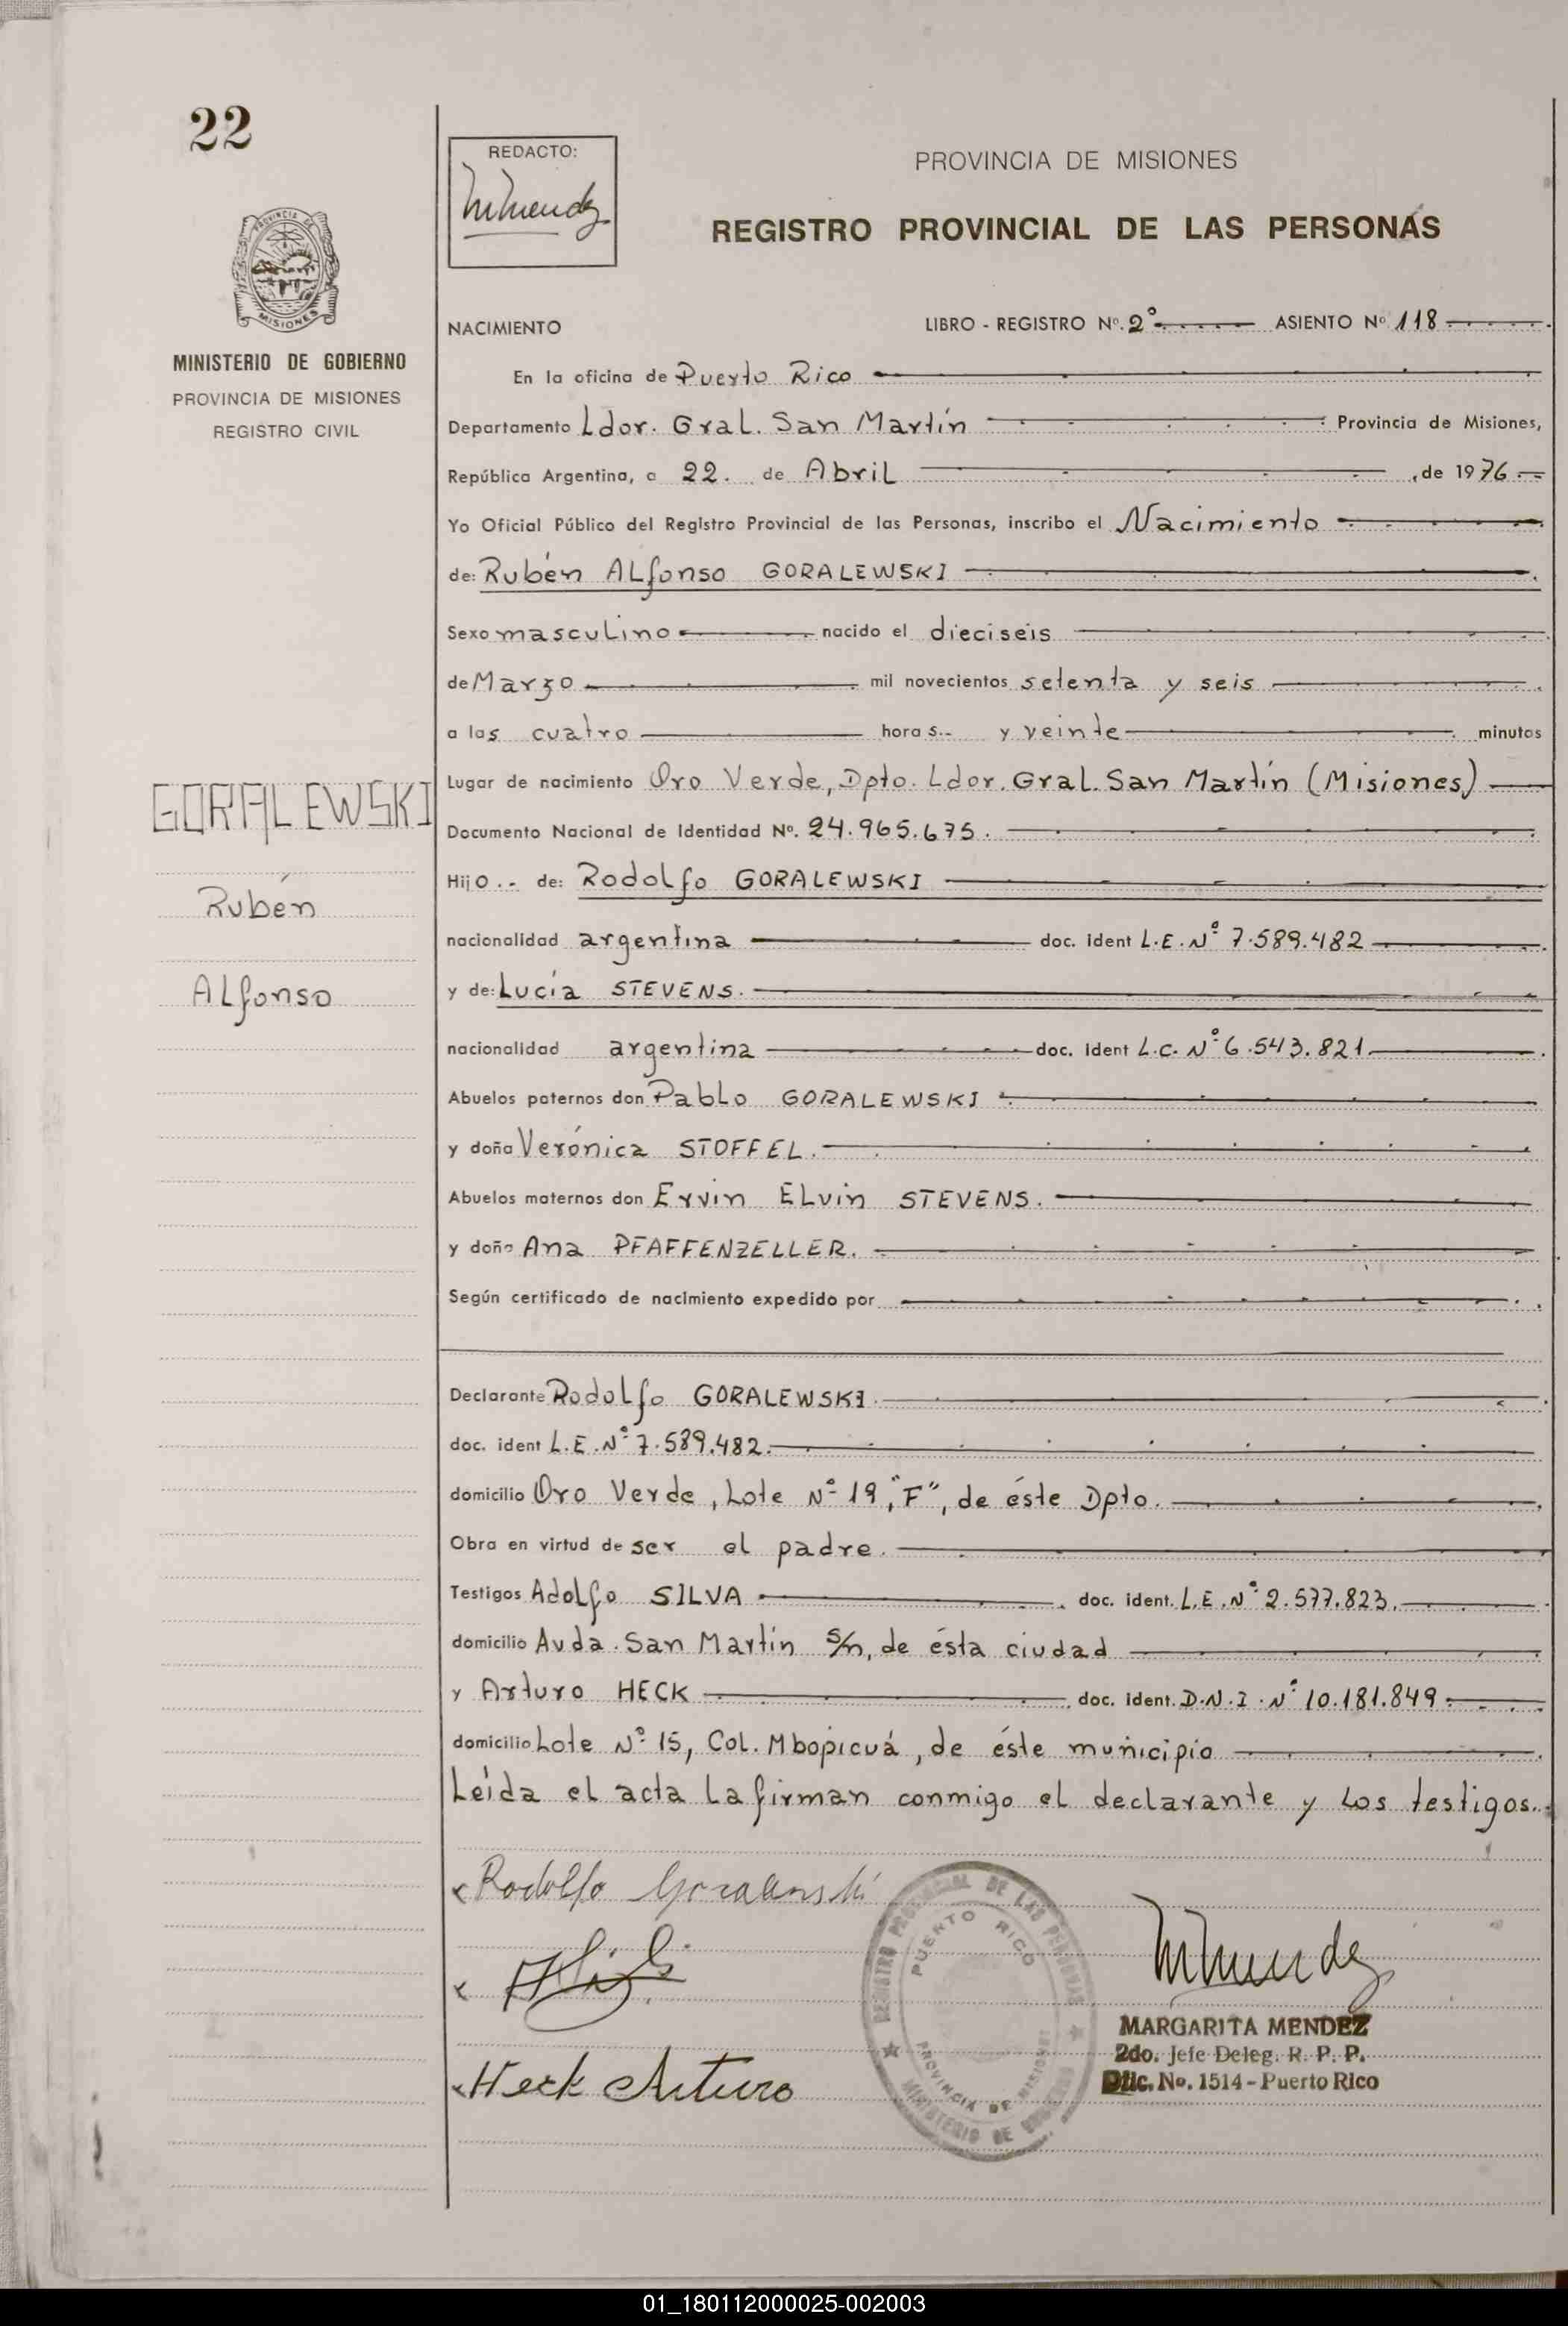 22
REDACTO:
MMendez
PROVINCIA DE MISIONES
REGISTRO PROVINCIAL DE LAS PERSONAS
PROVINCIA DE
MISIONES
MINISTERIO DE GOBIERNO
PROVINCIA DE MISIONES
REGISTRO CIVIL
NACIMIENTO LIBRO - REGISTRO Nº. 2º ASIENTO Nº 118
En la oficina de Puerto Rico
Departamento Ldor. Gral. San Martín Provincia de Misiones,
República Argentina, a 22. de Abril , de 1976
Yo Oficial Público del Registro Provincial de las Personas, inscribo el Nacimiento
de: Rubén Alfonso GORALEWSKI
Sexo masculino nacido el dieciseis
de Marzo mil novecientos setenta y seis
a las cuatro horas y veinte minutos
Lugar de nacimiento Oro Verde, Dpto. Ldor. Gral. San Martín (Misiones)
GORALEWSKI
Rubén
Alfonso
Documento Nacional de Identidad Nº. 24.965.675.
Hijo de: Rodolfo GORALEWSKI
nacionalidad argentina doc. ident L.E. Nº 7.589.482
y de: Lucía STEVENS.
nacionalidad argentina doc. ident L.C. Nº 6.543.821
Abuelos paternos don Pablo GORALEWSKI
y doña Verónica STOFFEL.
Abuelos maternos don Ervin Elvin STEVENS.
y doña Ana PFAFFENZELLER.
Según certificado de nacimiento expedido por
Declarante Rodolfo GORALEWSKI.
doc. ident L.E. Nº 7.589.482.
domicilio Oro Verde, Lote Nº 19, "F", de éste Dpto.
Obra en virtud de ser el padre.
Testigos Adolfo SILVA doc. ident. L.E. Nº 2.577.823.
domicilio Avda. San Martín s/n, de ésta ciudad
y Arturo HECK doc. ident. D.N.I. Nº 10.181.849
domicilio Lote Nº 15, Col. Mbopicuá, de éste municipio
Leída el acta la firman conmigo el declarante y los testigos.
Rodolfo Goralewski
Heck Arturo
REGISTRO PROVINCIAL DE LAS PERSONAS
PUERTO RICO
PROVINCIA DE MISIONES
MINISTERIO DE GOBIERNO
MMendez
MARGARITA MENDEZ
2do. Jefe Deleg. R. P. P.
Dlic. No. 1514 - Puerto Rico
01_180112000025-002003